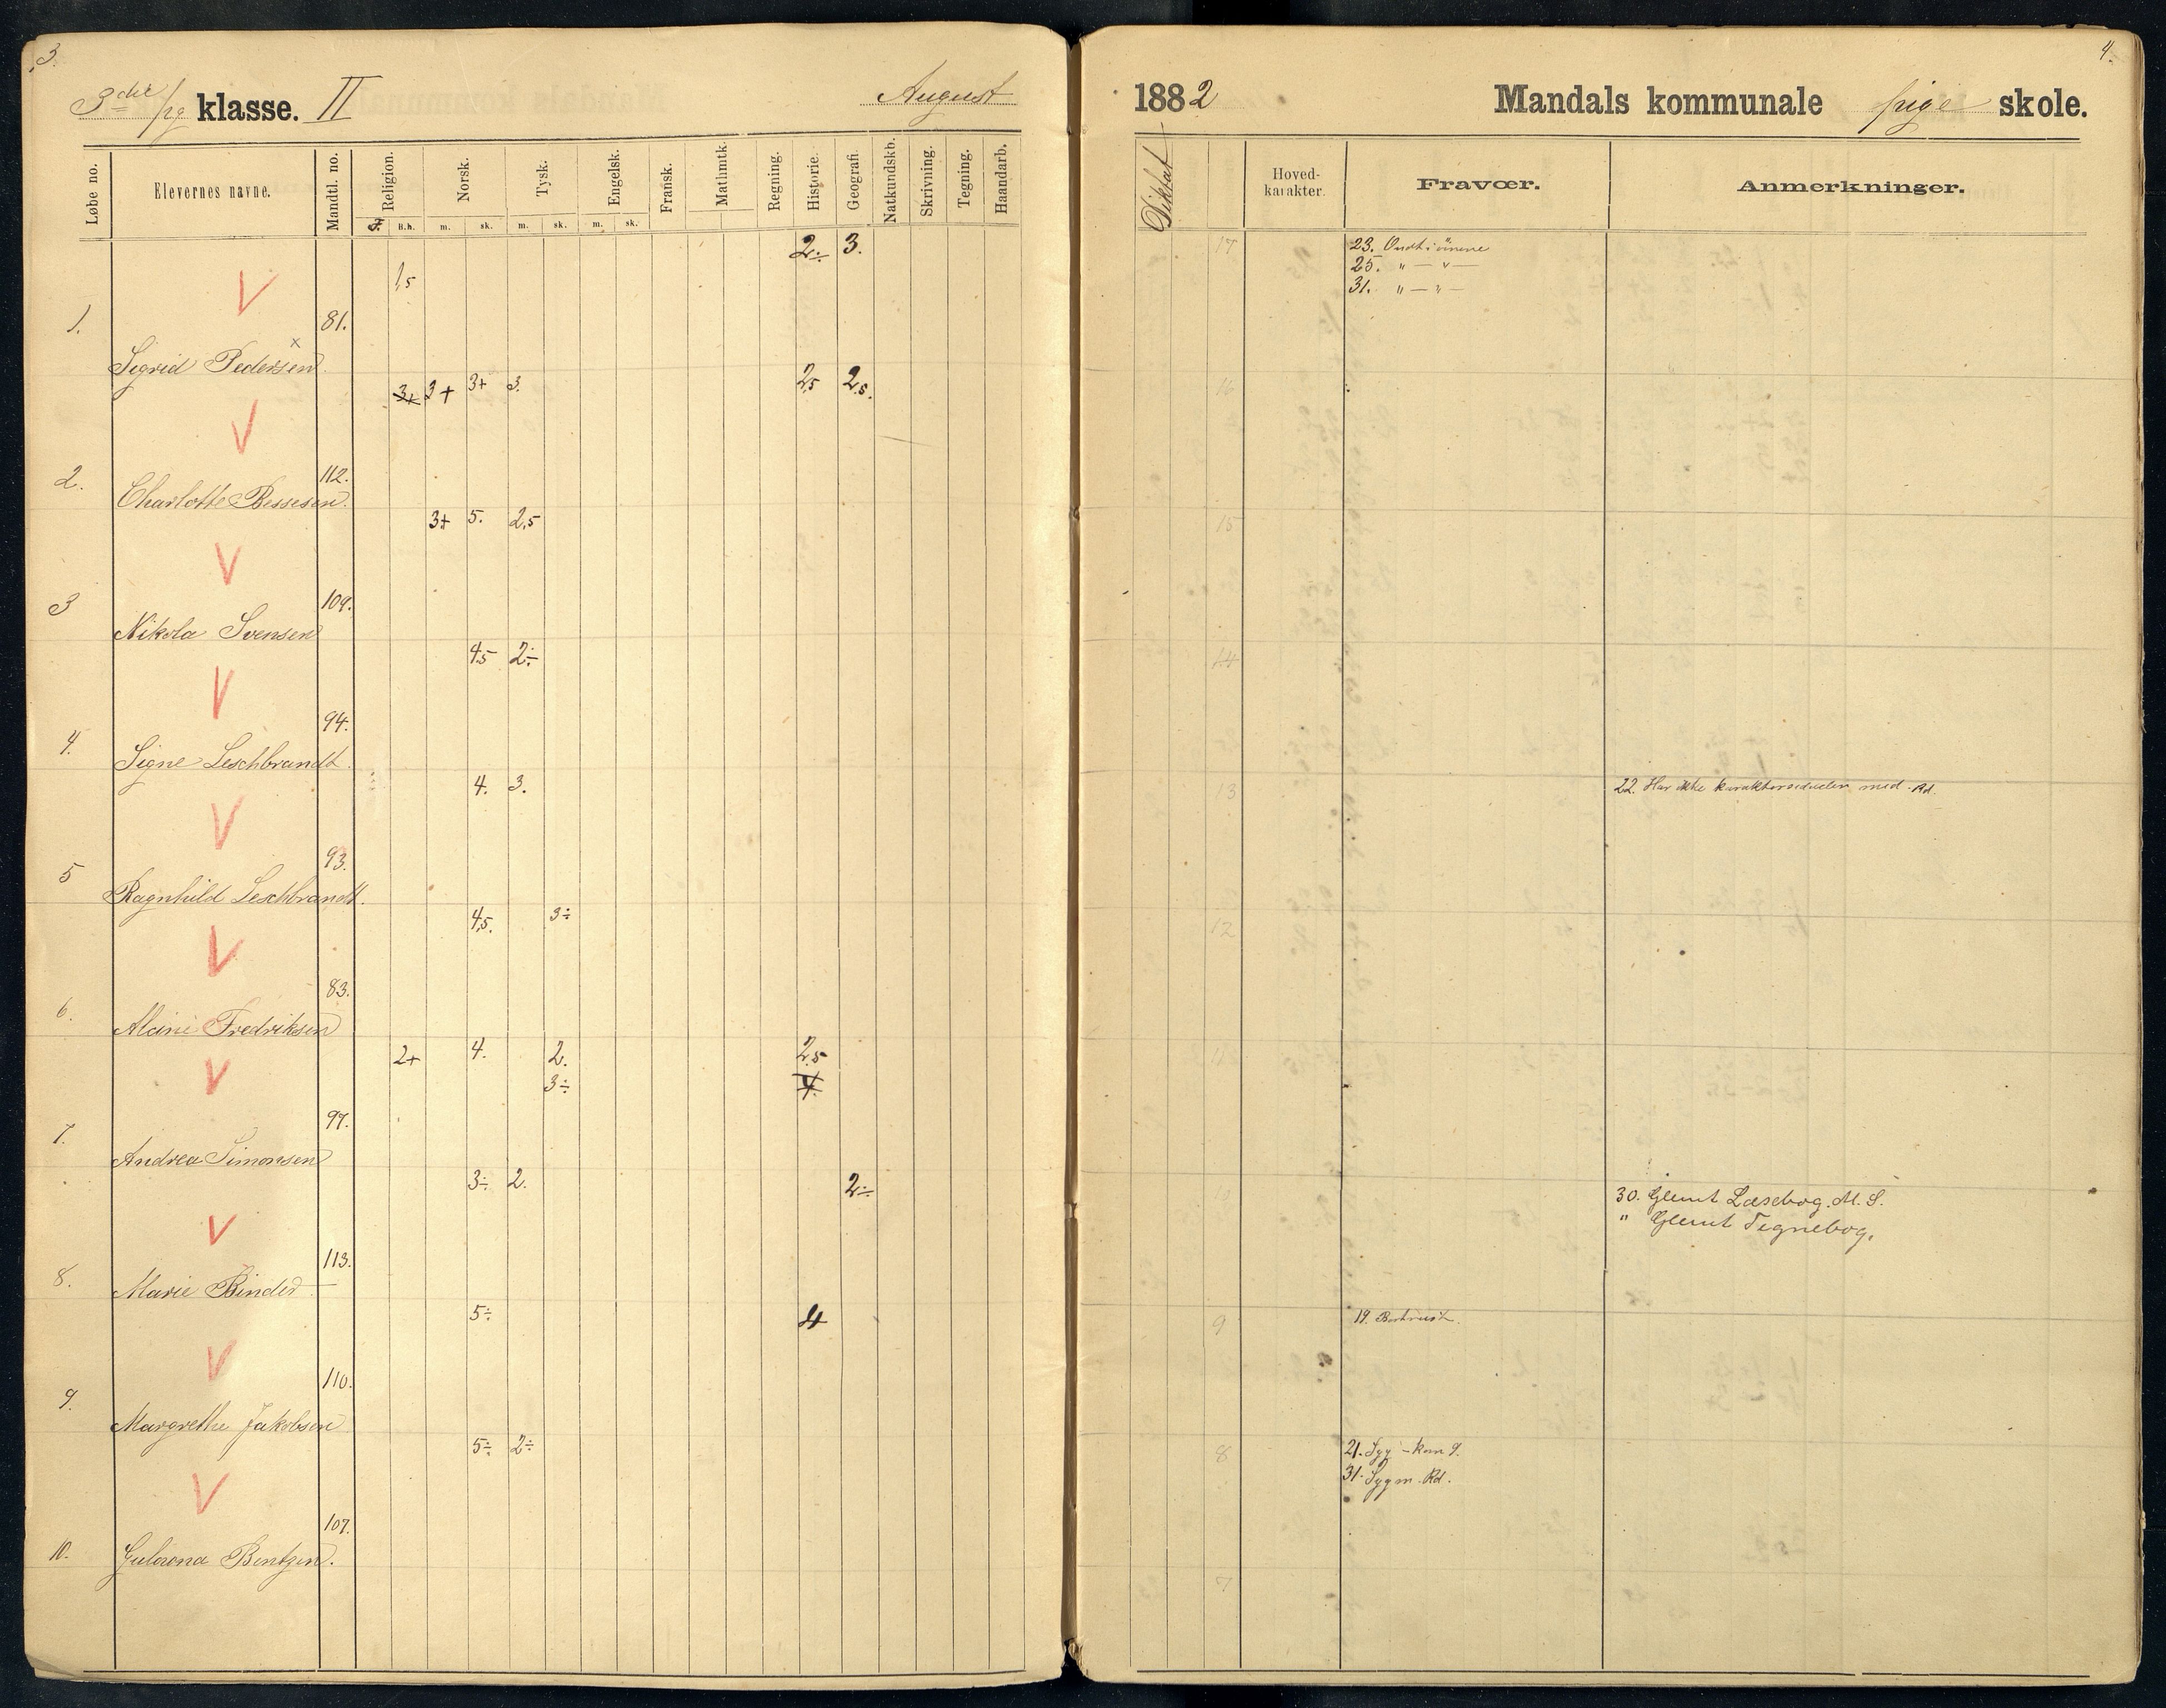 3.
3die pg klasse. II August
Løbe no. Elevernes navne. Mandtl. no. Religion. Norsk. Tysk. Engelsk. Fransk. Mathmtk. Regning. Historie. Geografi. Natkundskb. Skrivning. Tegning. Haandarb.
B.h. m. sk. m. sk. m. sk.
2÷ 3.
1,5
V
1. 81.
Sigrid Pedersen x
3+ 3+ 3+ 3. 2,5 2,5.
V
2. 112.
Charlotte Bessesen.
3+ 5. 2,5
V
3 109.
Nikola Svensen
4,5 2÷
V
4. 94.
Signe Leschbrandt.
4. 3.
V
5 93.
Ragnhild Leschbrandt.
4,5. 3÷
V
6. 83.
Alcine Fredriksen
2+ 4. 2. 2,5
3÷ 4.
V
7. 97.
Andrea Simonsen
3÷ 2. 2÷
V
8. 113.
Marie Binder
5÷ 4
V
9. 110.
Margrethe Jakobsen
5÷ 2÷
V
10. 107.
Gulovna Bentzen.
4.
1882 Mandals kommunale pige skole.
Diktat Hoved-karakter. Fravær. Anmerkninger.
17 23. Ondt i öinene
25. " — " —
31. " — " —
16
15
14
13 22. Har ikke karakterseddelen med. Rd.
12
11
10 30. Glemt Læsebog. M. S.
" Glemt Tegnebog.
9 19. Bortreist.
8 21. Syg – kom 9.
31. Syg m. Rd.
7